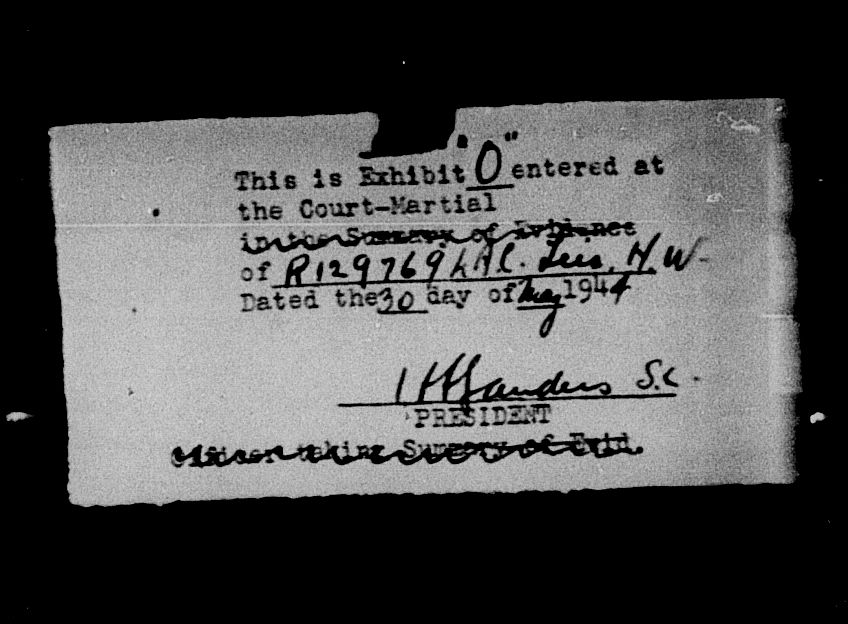 This is Exhibit "O" entered at
the Court-Martial
in the Summary of Evidence
of R129769 LAC. Leis, H. W.
Dated the 30 day of May 1944
Sanders S.L.
PRESIDENT
Officer taking Summary of Evid.